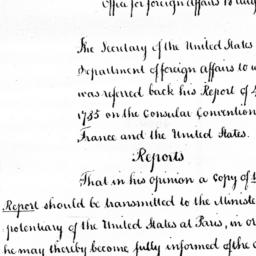 Office for foreign Affairs 18 Aug
The Secretary of the United States
Department of foreign Affairs to w
was referred back his Report of
1785 on the Consular Convention
France and the United States.
Reports
That in his opinion a Copy of
Report should be transmitted to the Ministe
potentiary of the United States at Paris, in or
he may thereby become fully informed of the